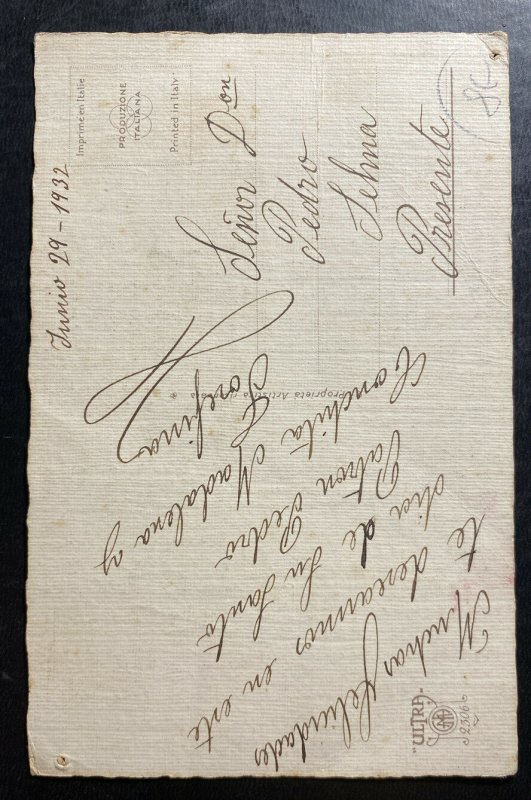 Muchas felicidades
te deseamos en este
dia de tu Santo
Patron Pedro
Conchita Madalena y
Josefina
Junio 29-1932
Señor Don
Pedro
Lehna
Presente
Imprimé en Italie
PRODUZIONE
ITALIANA
Printed in Italy
Proprietà Artistica riservata
"ULTRA"
2306